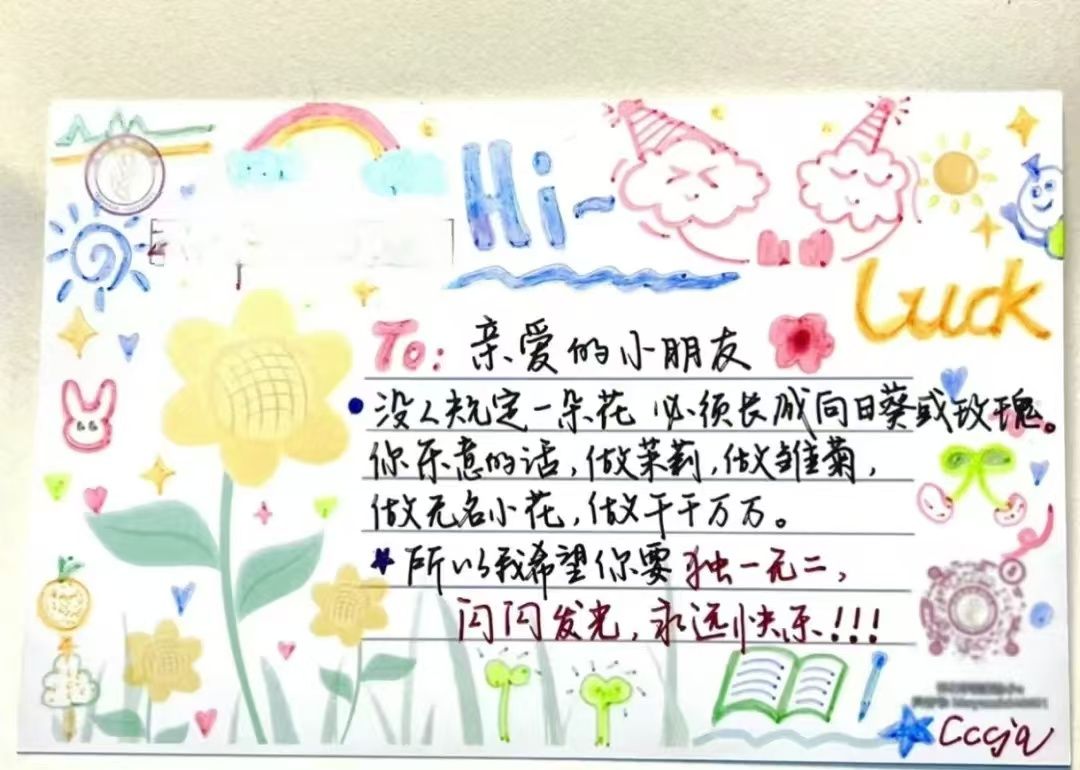 Hi~
Luck
To: 亲爱的小朋友
没人规定一朵花 必须长成向日葵或玫瑰。
你乐意的话,做茉莉,做雏菊,
做无名小花,做千千万万。
所以我希望你要 独一无二,
闪闪发光,永远快乐!!!
Cccja